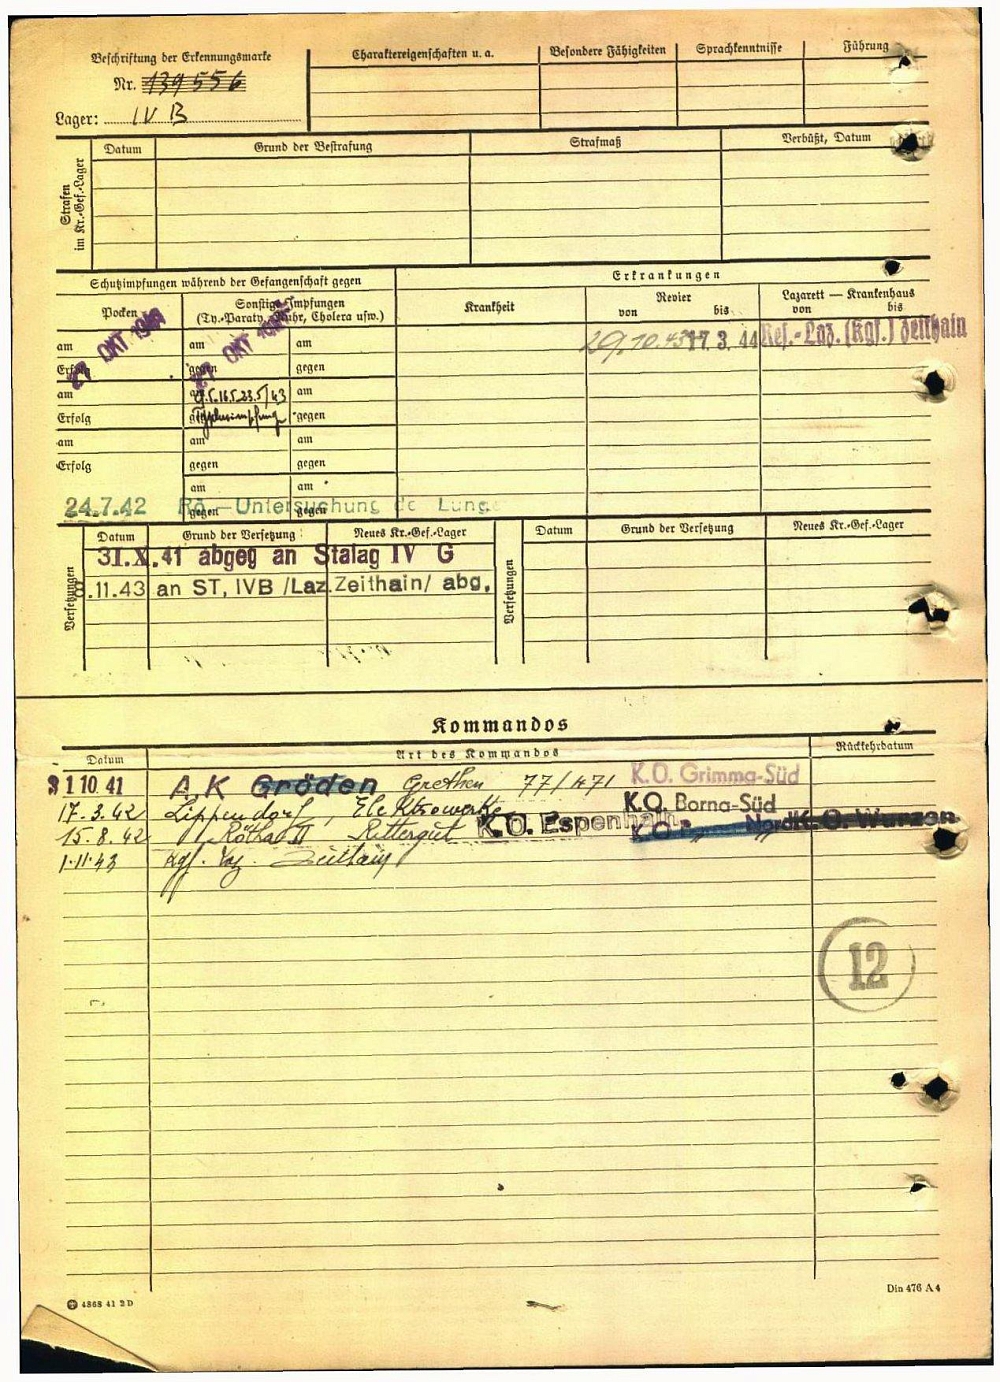 Beschriftung der Erkennungsmarke
Nr. 139556
Lager: IV B
Charaktereigenschaften u. a.
Besondere Fähigkeiten
Sprachkenntnisse
Führung
Strafen im Kr.-Gef.-Lager
Datum
Grund der Bestrafung
Strafmaß
Verbüßt, Datum
Schutzimpfungen während der Gefangenschaft gegen
Erkrankungen
Pocken
Sonstige Impfungen
(Ty.-Paraty., Ruhr, Cholera usw.)
Krankheit
Revier
von bis
Lazarett — Krankenhaus
von bis
27 OKT 1941
27 OKT 1941
29.10.43 17.3.44 Res.-Laz. (Kgf.) Zeithain
am am am
Erfolg gegen gegen
am 9.5.16.5.23.5/43 am
Erfolg gegen
am am am
Erfolg gegen gegen
am am
gegen gegen
24.7.42 Rö.—Untersuchung de Lung
Versetzungen
Datum
Grund der Versetzung
Neues Kr.-Gef.-Lager
Versetzungen
Datum
Grund der Versetzung
Neues Kr.-Gef.-Lager
31.X.41 abgeg an Stalag IV G
8.11.43 an ST, IVB /Laz.Zeithain/ abg,
Kommandos
Datum
Art des Kommandos
Rückkehrdatum
31 10. 41 A.K Gröden Grethen 77/471 K.O. Grimma-Süd
17.3.42 Lippendorf, Elektrowerke K.O. Borna-Süd
15.8.42 Rötha II Rittergut K.O. Espenhain K.O. Nord K.O. Wurzen
1.11.43 Kgf. Laz. Zeithain
12
4868 41 2 D
Din 476 A 4